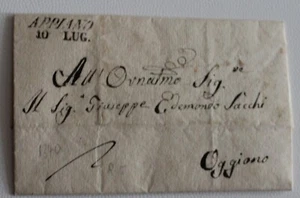 APPIANO
10 LUG.
All' Ornatmo Sig.re
Il Sig.r Giuseppe Edemondo Sacchi
Oggiono